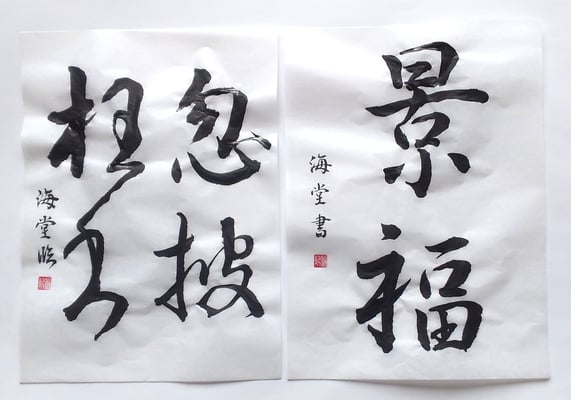 景福
海堂書
忽披
枉書
海堂臨